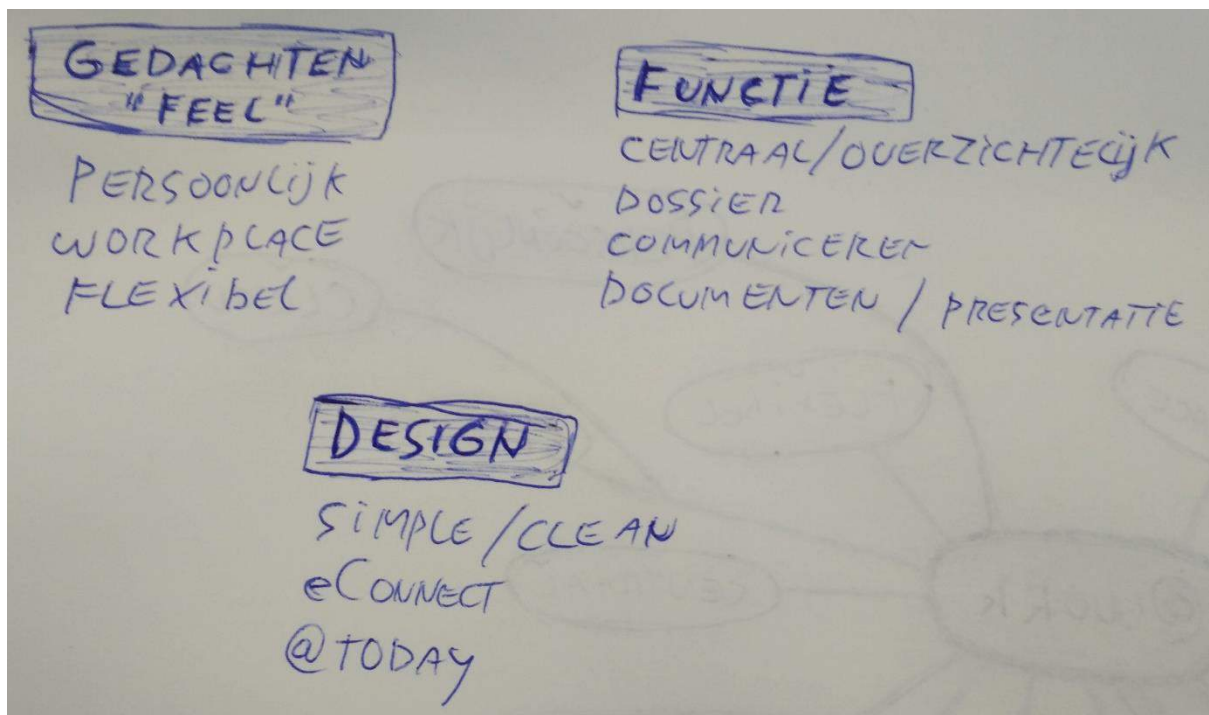 GEDACHTEN
"FEEL"
PERSOONLIJK
WORKPLACE
FLEXIBEL
FUNCTIE
CENTRAAL/OVERZICHTELIJK
DOSSIER
COMMUNICEREN
DOCUMENTEN / PRESENTATIE
DESIGN
SIMPLE/CLEAN
eCONNECT
@TODAY